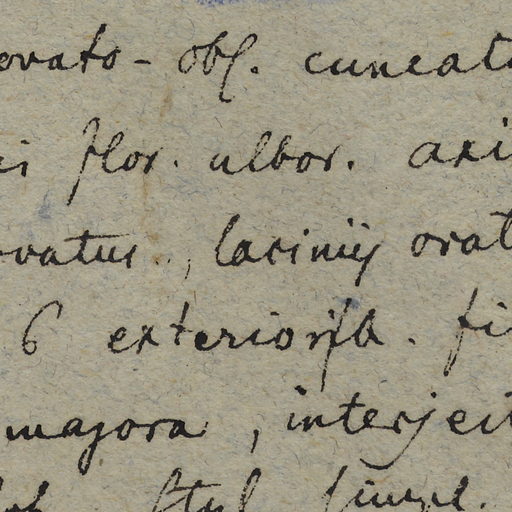 ovato - obl. cuneat
is flor. albor. axi
ovatus, laciniis ovat
6 exteriorib. fi
majora, interject
styl. simpl.